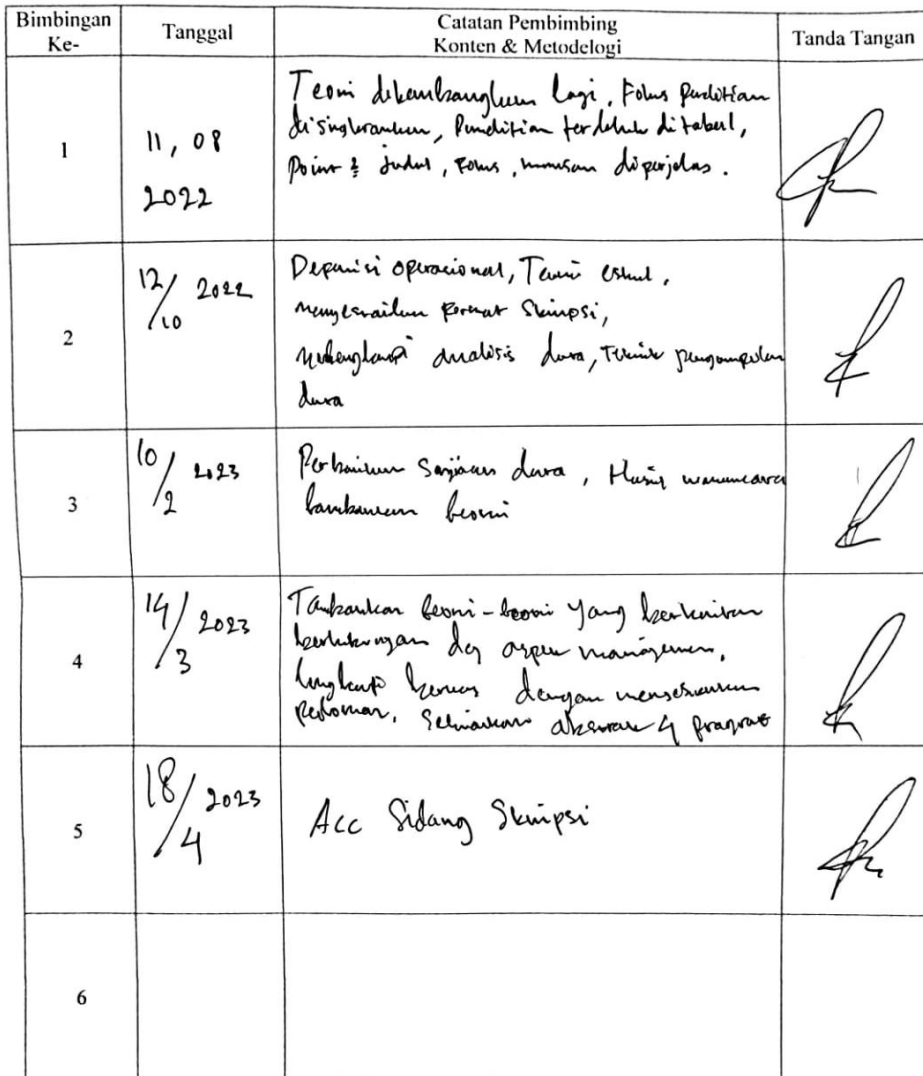 Bimbingan Ke-
Tanggal
Catatan Pembimbing
Konten & Metodelogi
Tanda Tangan
1
11, 08
2022
Teori dikembangkan lagi, Fokus penelitian
disingkronkan, Penelitian terdahulu di tabel,
Point judul, Fokus, diperjelas.
2
12/10 2022
Depinisi operacional, Teori
menyesuaikan Format Skripsi,
melengkapi analisis data, Teknik pengumpulan
data
3
10/2 2023
Perbaikan Sajian data, Hasil wawancara
teori
4
14/3 2023
Tambahkan teori-teori yang berkaitan
dg aspek manajemen,
lengkapi dengan menyesuaikan
pedoman, 4
5
18/4 2023
Acc Sidang Skripsi
6